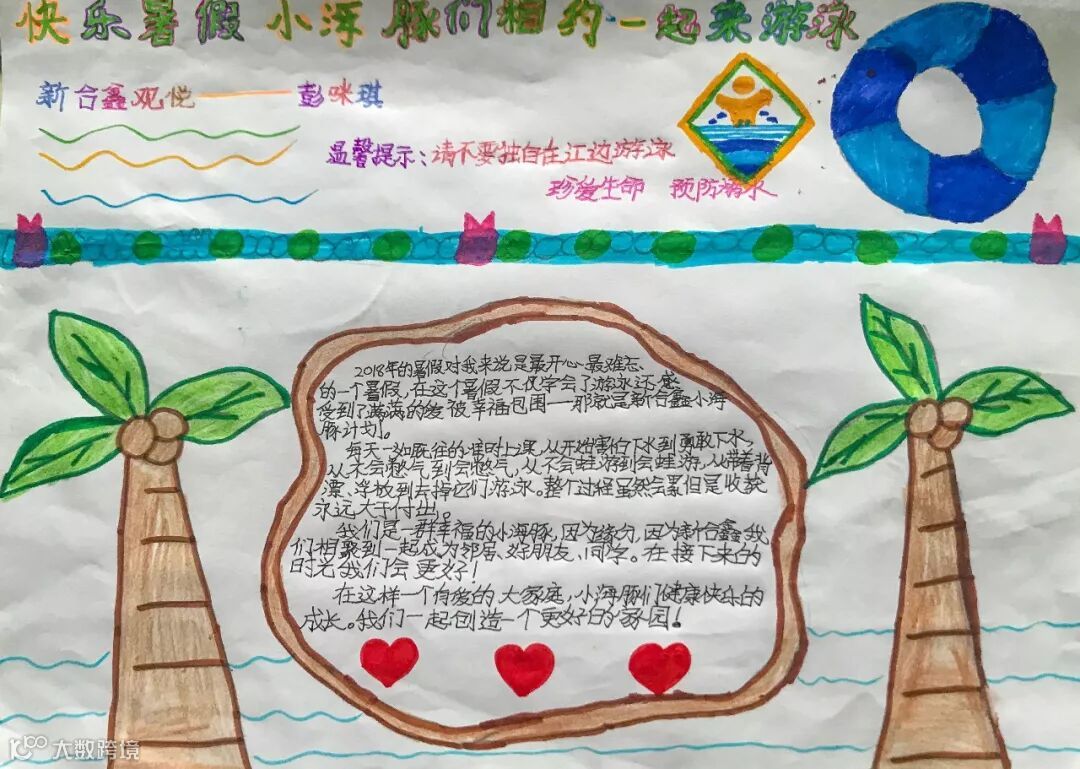 快乐暑假 小海豚们相约一起来游泳
新合鑫观悦——彭咪琪
温馨提示：请不要独自在江边游泳
珍爱生命 预防溺水
2018年的暑假对我来说是最开心、最难忘、
的一个暑假，在这个暑假不仅学会了游泳还感
受到了满满的爱被幸福包围——那就是新合鑫小海
豚计划。
每天一如既往的准时上课，从开始害怕下水到勇敢下水，
从不会憋气到会憋气，从不会蛙游到会蛙游，从带着背
漂、浮板到去掉它们游泳。整个过程虽然会累但是收获
永远大于付出。
我们是一群幸福的小海豚，因为缘分，因为新合鑫我
们相聚到一起成为邻居、好朋友、同学。在接下来的
时光我们会更好！
在这样一个有爱的大家庭，小海豚们健康快乐的
成长。我们一起创造一个更好的家园！
大数跨境